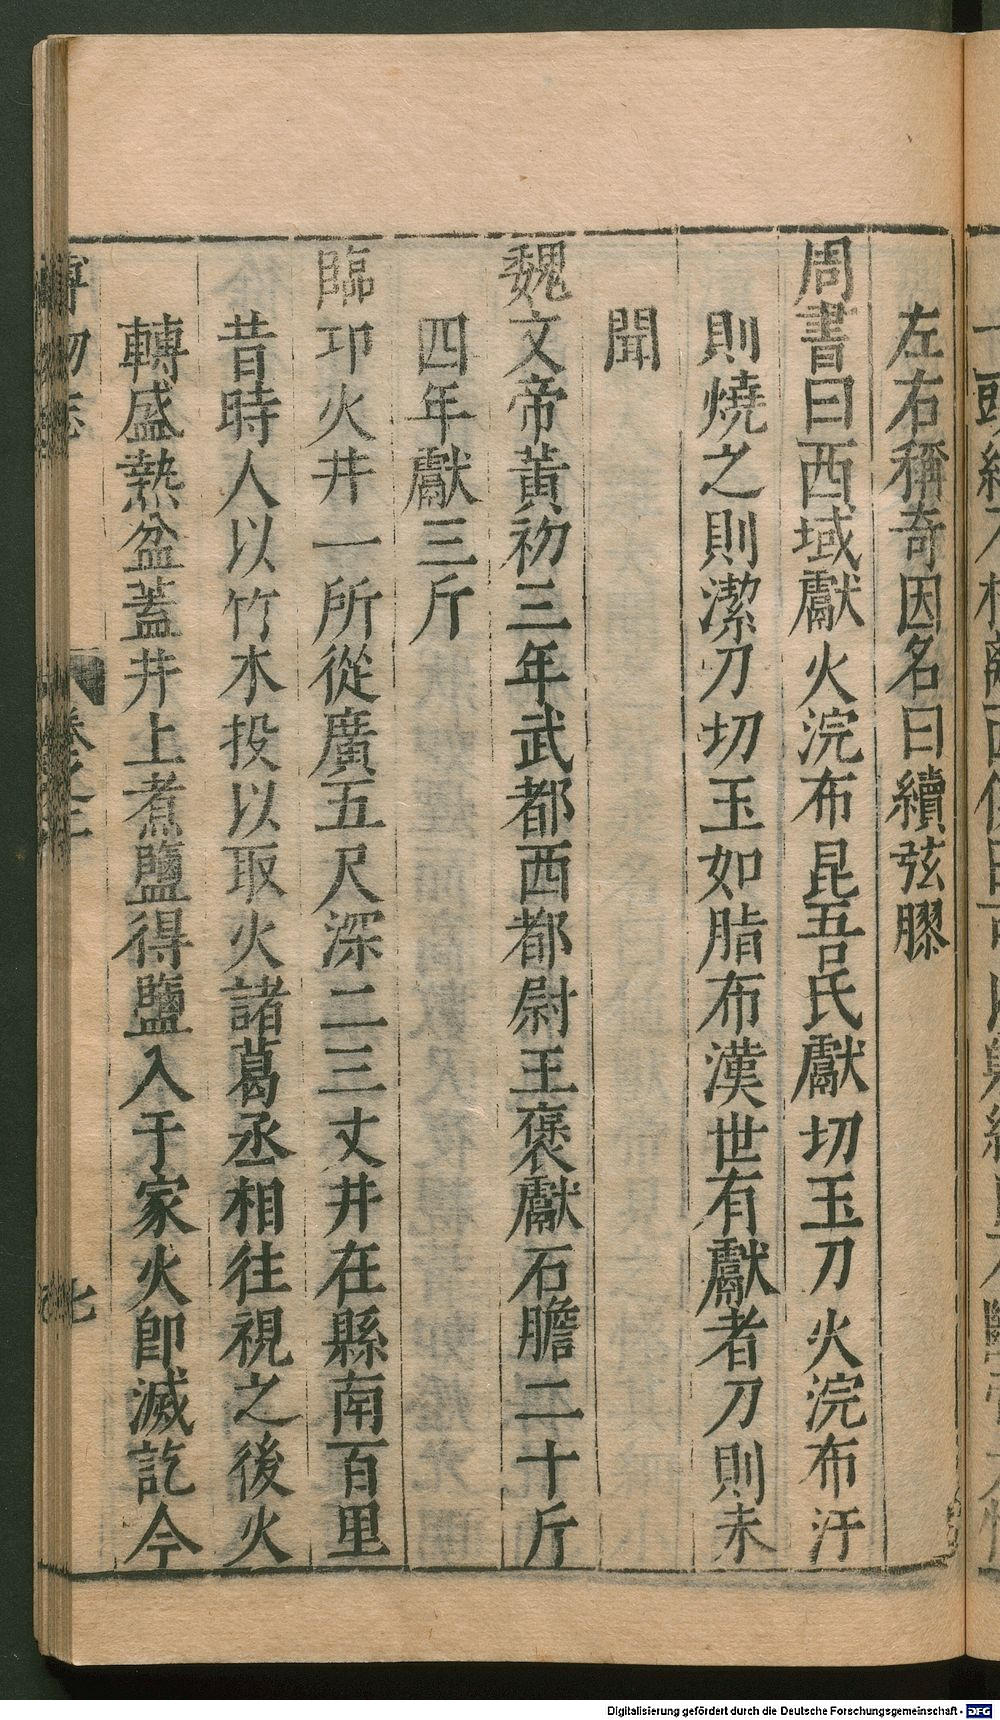 左右稱奇因名曰續弦膠
周書曰西域獻火浣布昆吾氏獻切玉刀火浣布汙
則燒之則潔刀切玉如脂布漢世有獻者刀則未
聞
魏文帝黃初三年武都西都尉王褒獻石膽二十斤
四年獻三斤
臨邛火井一所從廣五尺深二三丈井在縣南百里
昔時人以竹木投以取火諸葛丞相往視之後火
轉盛熱盆蓋井上煮鹽得鹽入于家火卽滅訖今
博物志 卷之二 七
Digitalisierung gefördert durch die Deutsche Forschungsgemeinschaft - DFG